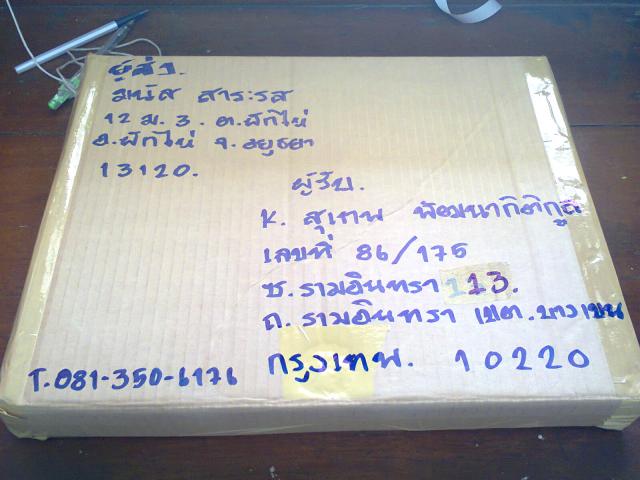 ผู้ส่ง.
มนัส สาระรส
12 ม. 3. ต.ผักไห่
อ.ผักไห่ จ.อยุธยา
13120.
ผู้รับ.
K. สุเทพ พัฒนากิติกูล
เลขที่ 86/175
ซ.รามอินทรา 113.
ถ.รามอินทรา เขต.บางเขน
กรุงเทพ. 10220
T.081-350-6176